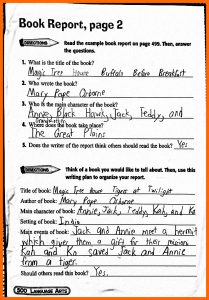 Book Report, page 2
DIRECTIONS Read the example book report on page 499. Then, answer
the questions.
1. What is the title of the book?
Magic Tree House Buffalo Before Breakfast
2. Who wrote the book?
Mary Pope Osborne
3. Who is the main character of the book?
Annie, Black Hawk, Jack, Teddy, and
Grandmother
4. Where does the book take place?
The Great Plains
5. Does the writer of the report think others should read the book? Yes
DIRECTIONS Think of a book you would like to tell about. Then, use this
writing plan to organize your report.
Title of book: Magic Tree House Tigers at Twilight
Author of book: Mary Pope Osborne
Main character of book: Annie, Jack, Teddy, Kah, and Ko
Setting of book: India
Main events of book: Jack and Annie meet a hermit
which giver them a gift for their mission
Kah and Ko saved Jack and Annie
from a tiger.
Should others read this book? Yes.
500 LANGUAGE ARTS